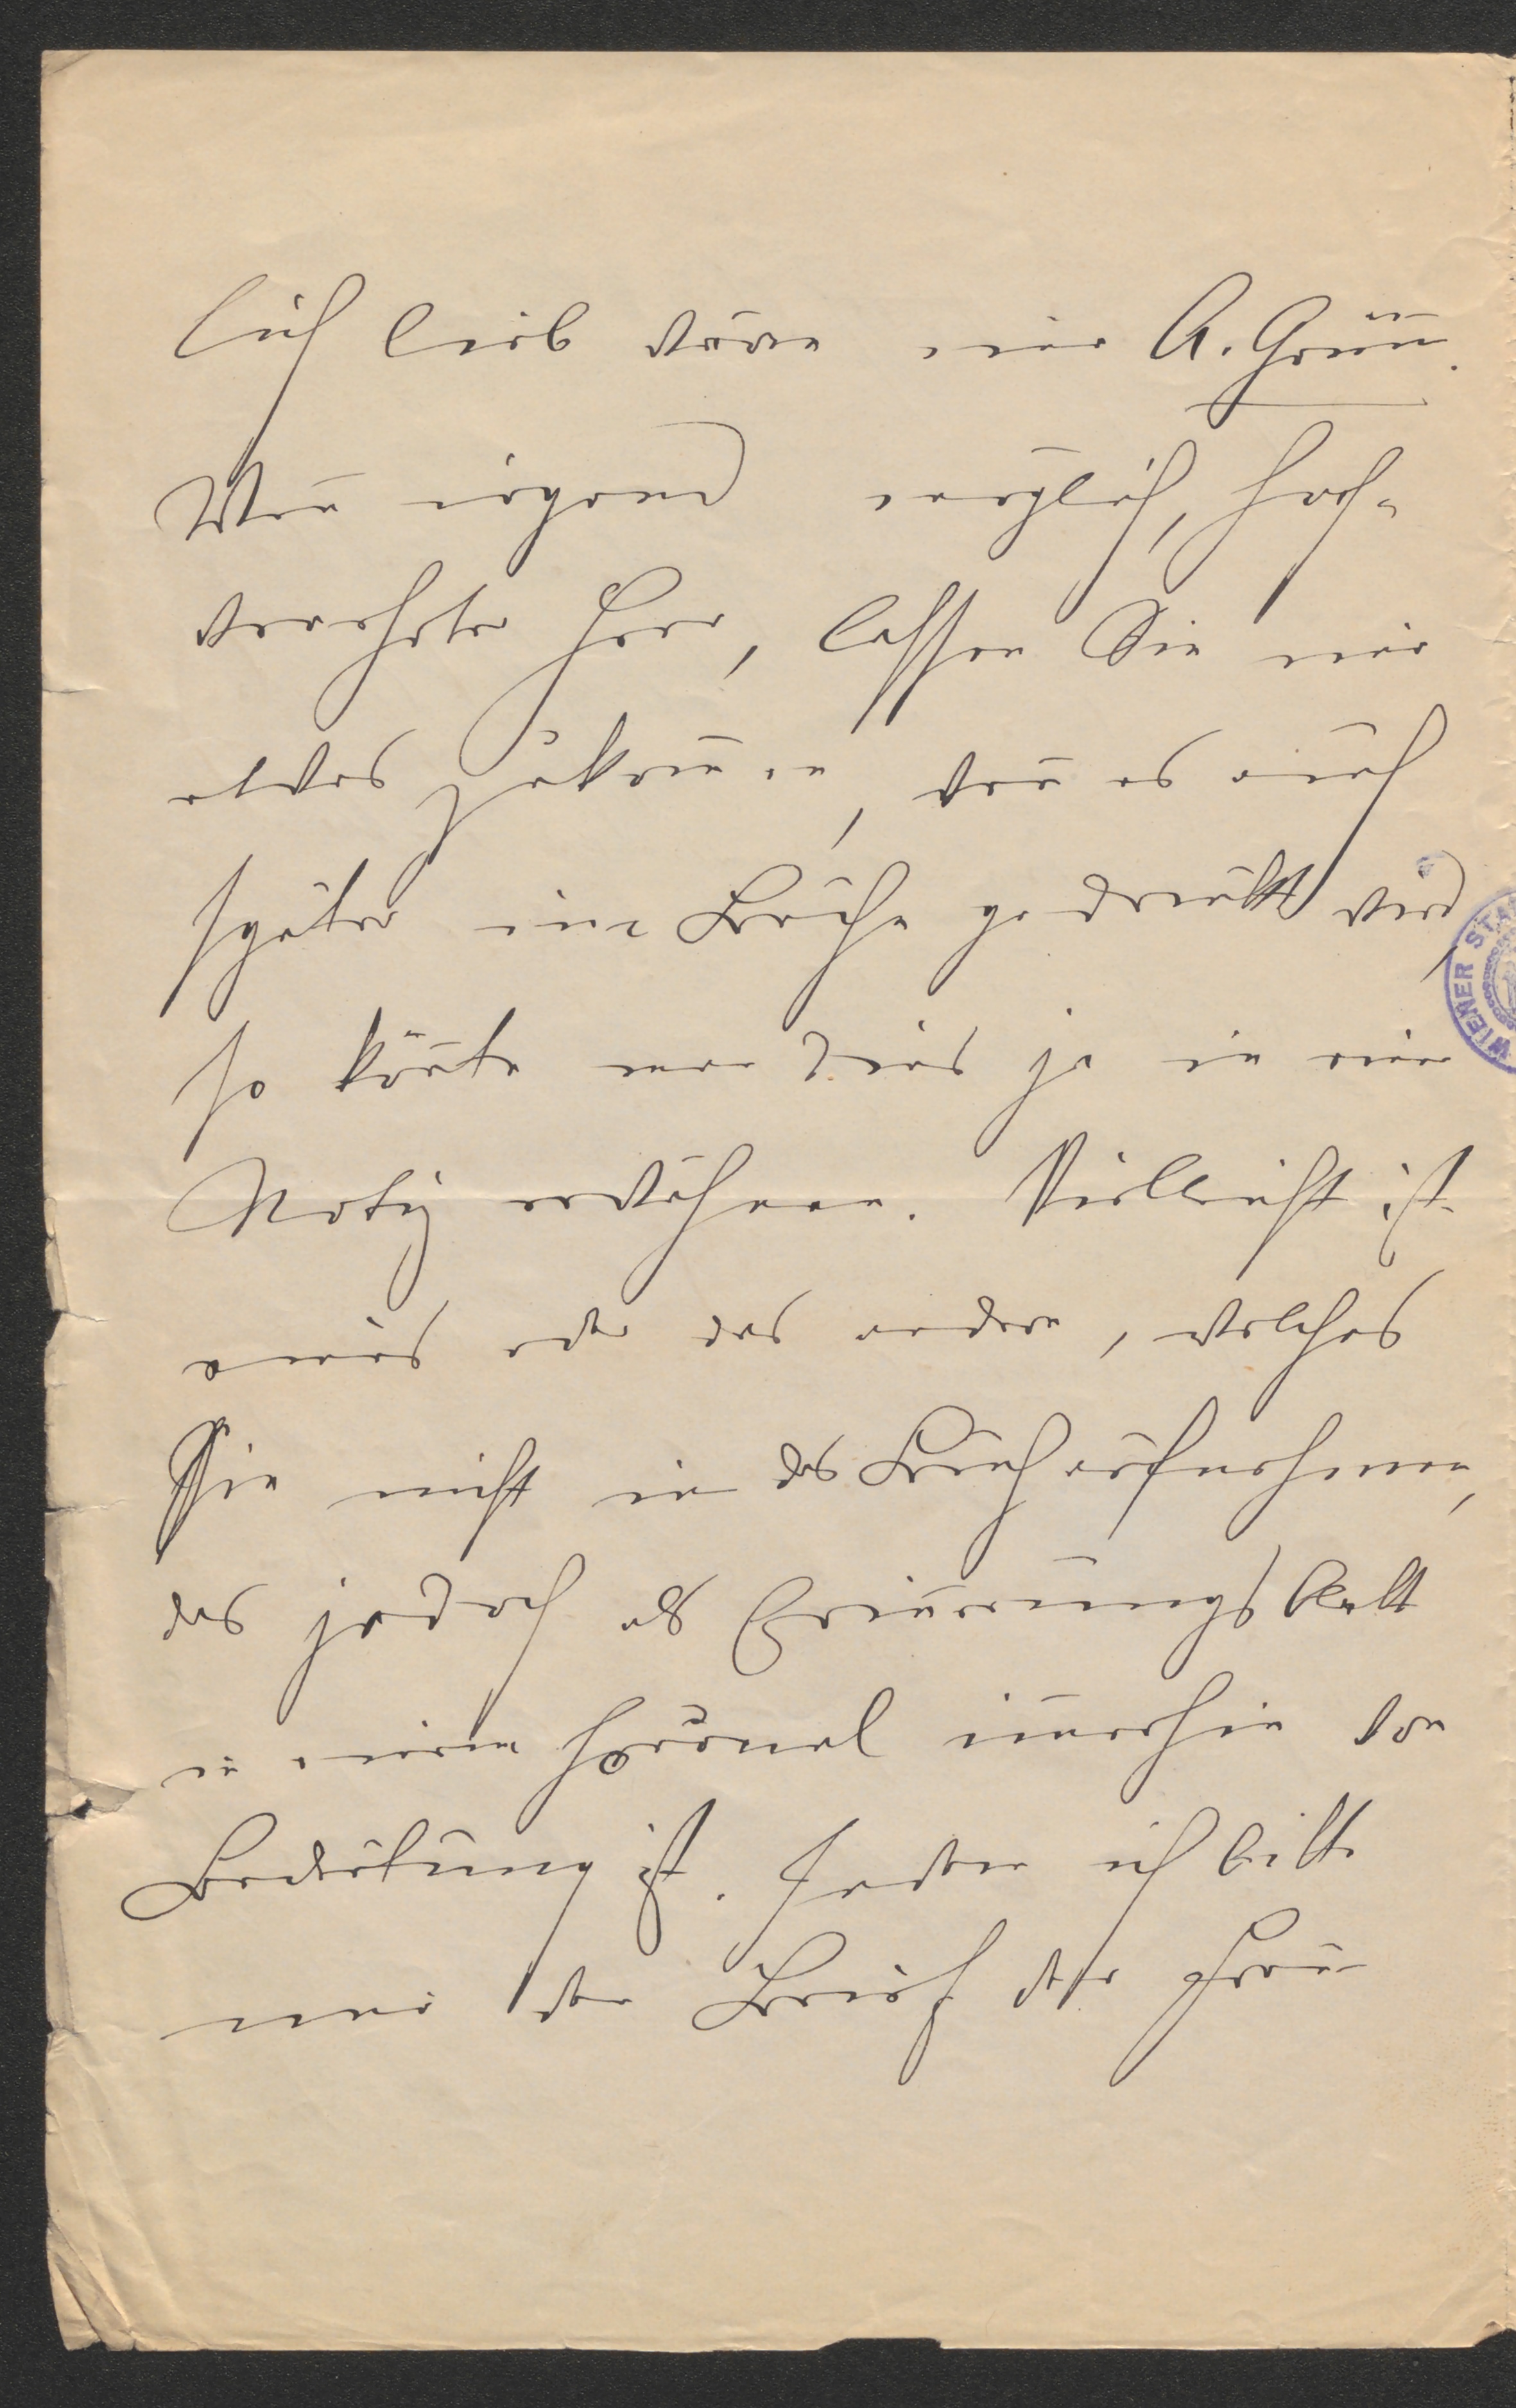 lich lieb wäre mir A. Grün.
Wen̄ irgend möglich, hoch-
verehrter Herr, lassen Sie mir
etwas zukom̄en, wen̄ es auch
später im Buche gedruckt wird,
so kön̄te man dies ja in einer
Notiz erwähnen. Vielleicht ist
eines oder das andere, welches
Sie nicht in das Buch aufnehmen,
das jedoch als Erin̄erungsblatt
in einem Journal im̄erhin von
Bedeutung ist. Indem ich bitte
mir den Brief der Frau
WIENER STA